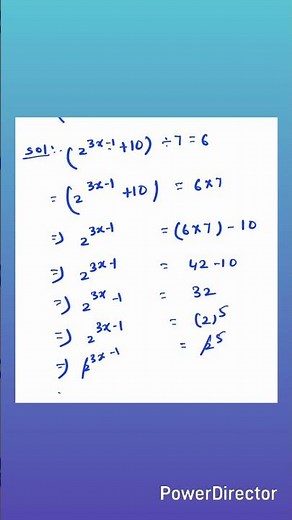 Sol:- (2^{3x-1}+10) ÷7=6
=(2^{3x-1}+10) = 6x7
=) 2^{3x-1} =(6x7)-10
=) 2^{3x-1} = 42-10
=) 2^{3x-1} = 32
=) 2^{3x-1} = (2)^5
=) 2^{3x-1} = 2^5
PowerDirector